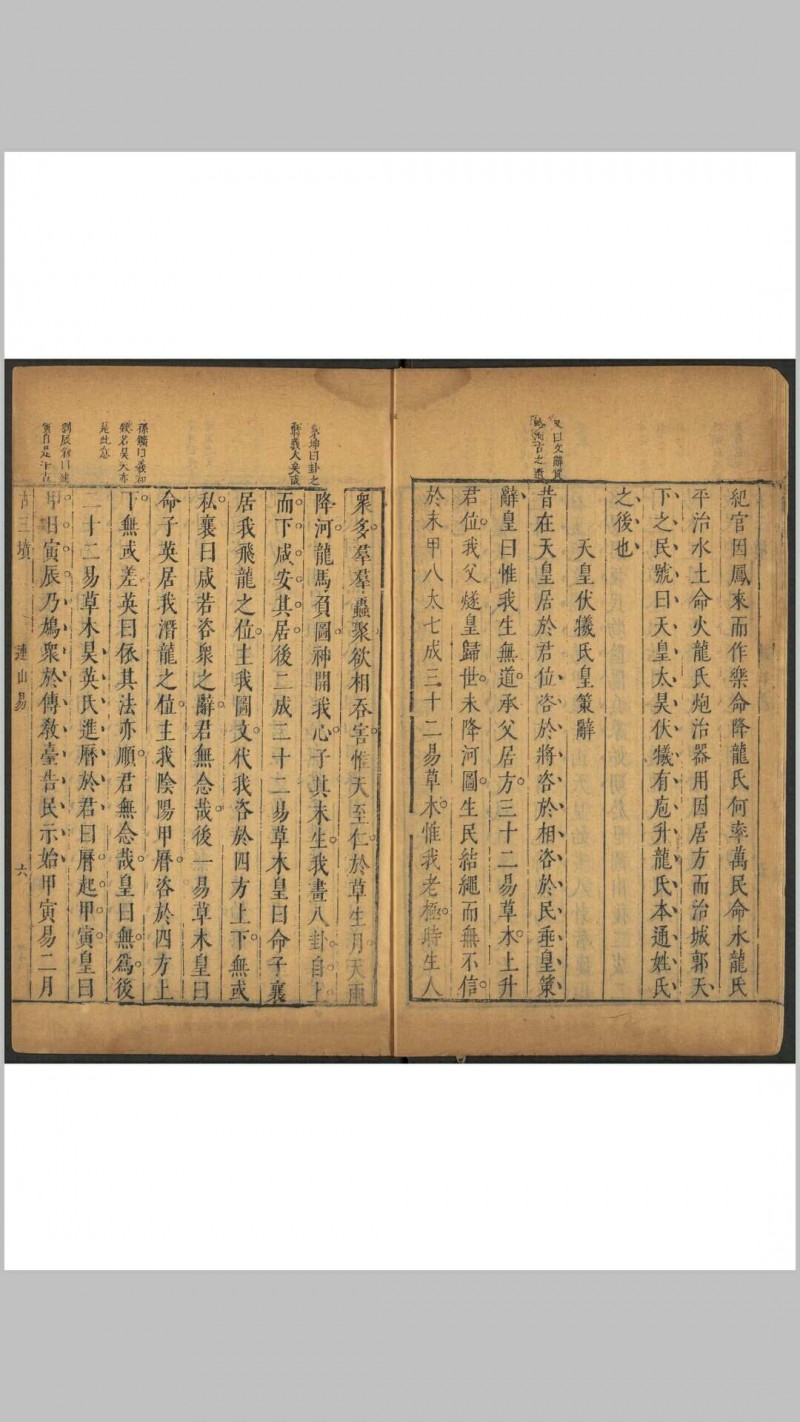 紀官因鳳來而作樂命降龍氏何率萬民命水龍氏
平治水土命火龍氏炮治器用因居方而治城郭天
下之民號曰天皇太昊伏犧有庖升龍氏本通姓氏
之後也
天皇伏犧氏皇策辭
昔在天皇居於君位咨於將咨於相咨於民垂皇策
辭皇曰惟我生無道承父居方三十二易草木上升
君位我父燧皇歸世未降河圖生民結繩而無不信
於末甲八太七成三十二易草木惟我老極時生人
眾多羣羣蟲聚欲相吞害惟天至仁於草生月天雨
降河龍馬負圖神開我心子其未生我畫八卦自上
而下咸安其居後二成三十二易草木皇曰命子襄
居我飛龍之位主我圖文代我咨於四方上下無或
私襄曰咸若咨眾之辭君無念哉後一易草木皇曰
命子英居我潛龍之位主我陰陽甲曆咨於四方上
下無或差英曰依其法亦順君無念哉皇曰無為後
二十二易草木昊英氏進曆於君曰曆起甲寅皇曰
甲日寅辰乃鳩眾於傳教臺告民示始甲寅易二月
古三墳
連山易
六